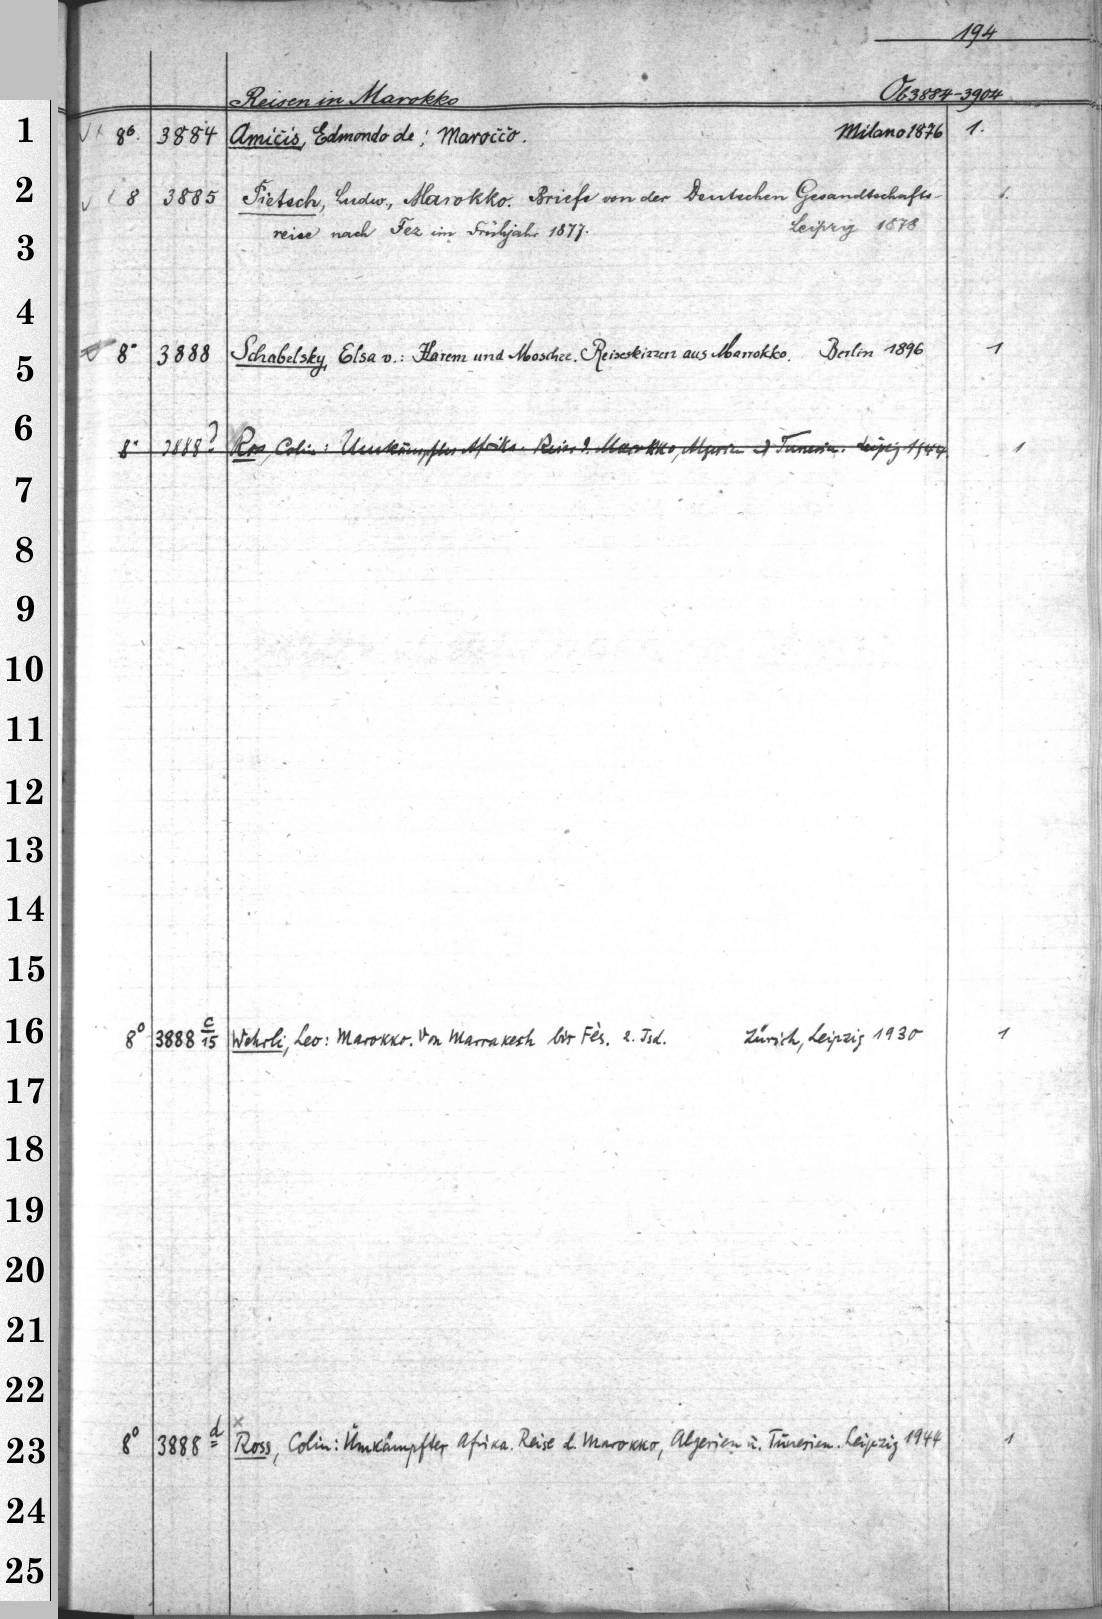 194
Reisen in Marokko Ob3884-3904
1 8° 3884 Amicis, Edmondo de; Marocco. Milano 1876 1.
2 8 3885 Pietsch, Ludw., Marokko. Briefe von der Deutschen Gesandtschafts- 1.
reise nach Fez im Frühjahr 1877. Leipzig 1878
3
4
5 8° 3888 Schabelsky, Elsa v.: Harem und Moschee. Reiseskizzen aus Marrokko. Berlin 1896 1
6 8° 3888? Ross, Colin: Umkämpftes Afrika. Reise d. Marokko, Algerien u. Tunesien. Leipzig 1944. 1
7
8
9
10
11
12
13
14
15
16 8° 3888 c/15 Wehrli, Leo: Marokko. Von Marrakesh bis Fès. 2. Tsd. Zürich, Leipzig 1930 1
17
18
19
20
21
22
23 8° 3888 d Ross, Colin: Umkämpfter Afrika. Reise d. Marokko, Algerien u. Tunesien. Leipzig 1944 1
24
25